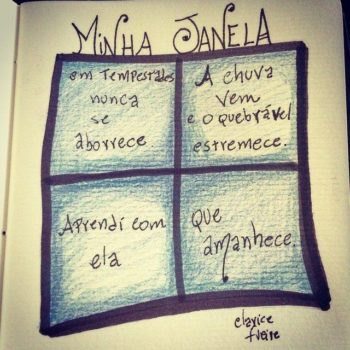 MINHA JANELA
em Tempestades
nunca
se
aborrece
A chuva
vem
e o quebrável
estremece.
Aprendi com
ela
que
amanhece.
clarice
freire